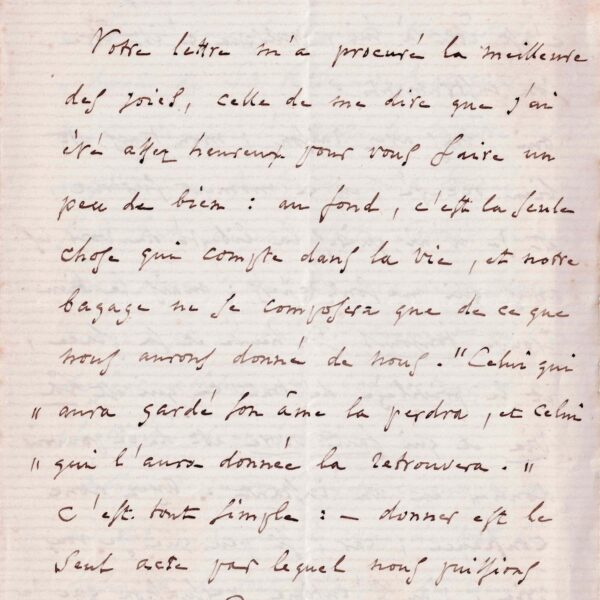 Votre lettre m'a procuré la meilleure
des joies, celle de me dire que j'ai
été assez heureux pour vous faire un
peu de bien : au fond, c'est la seule
chose qui compte dans la vie, et notre
bagage ne se composera que de ce que
nous aurons donné de nous. "Celui qui
" aura gardé son âme la perdra, et celui
" qui l'aura donnée la retrouvera. "
C'est tout simple : — donner est le
seul acte par lequel nous puissions